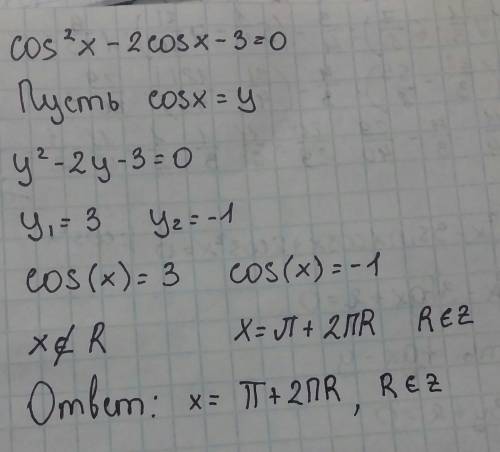 cos²x - 2cosx - 3 = 0
Пусть cosx = y
y² - 2y - 3 = 0
y₁ = 3 y₂ = -1
cos(x) = 3 cos(x) = -1
x∉R x = π + 2πR R∈Z
Ответ: x = π + 2πR, R∈Z